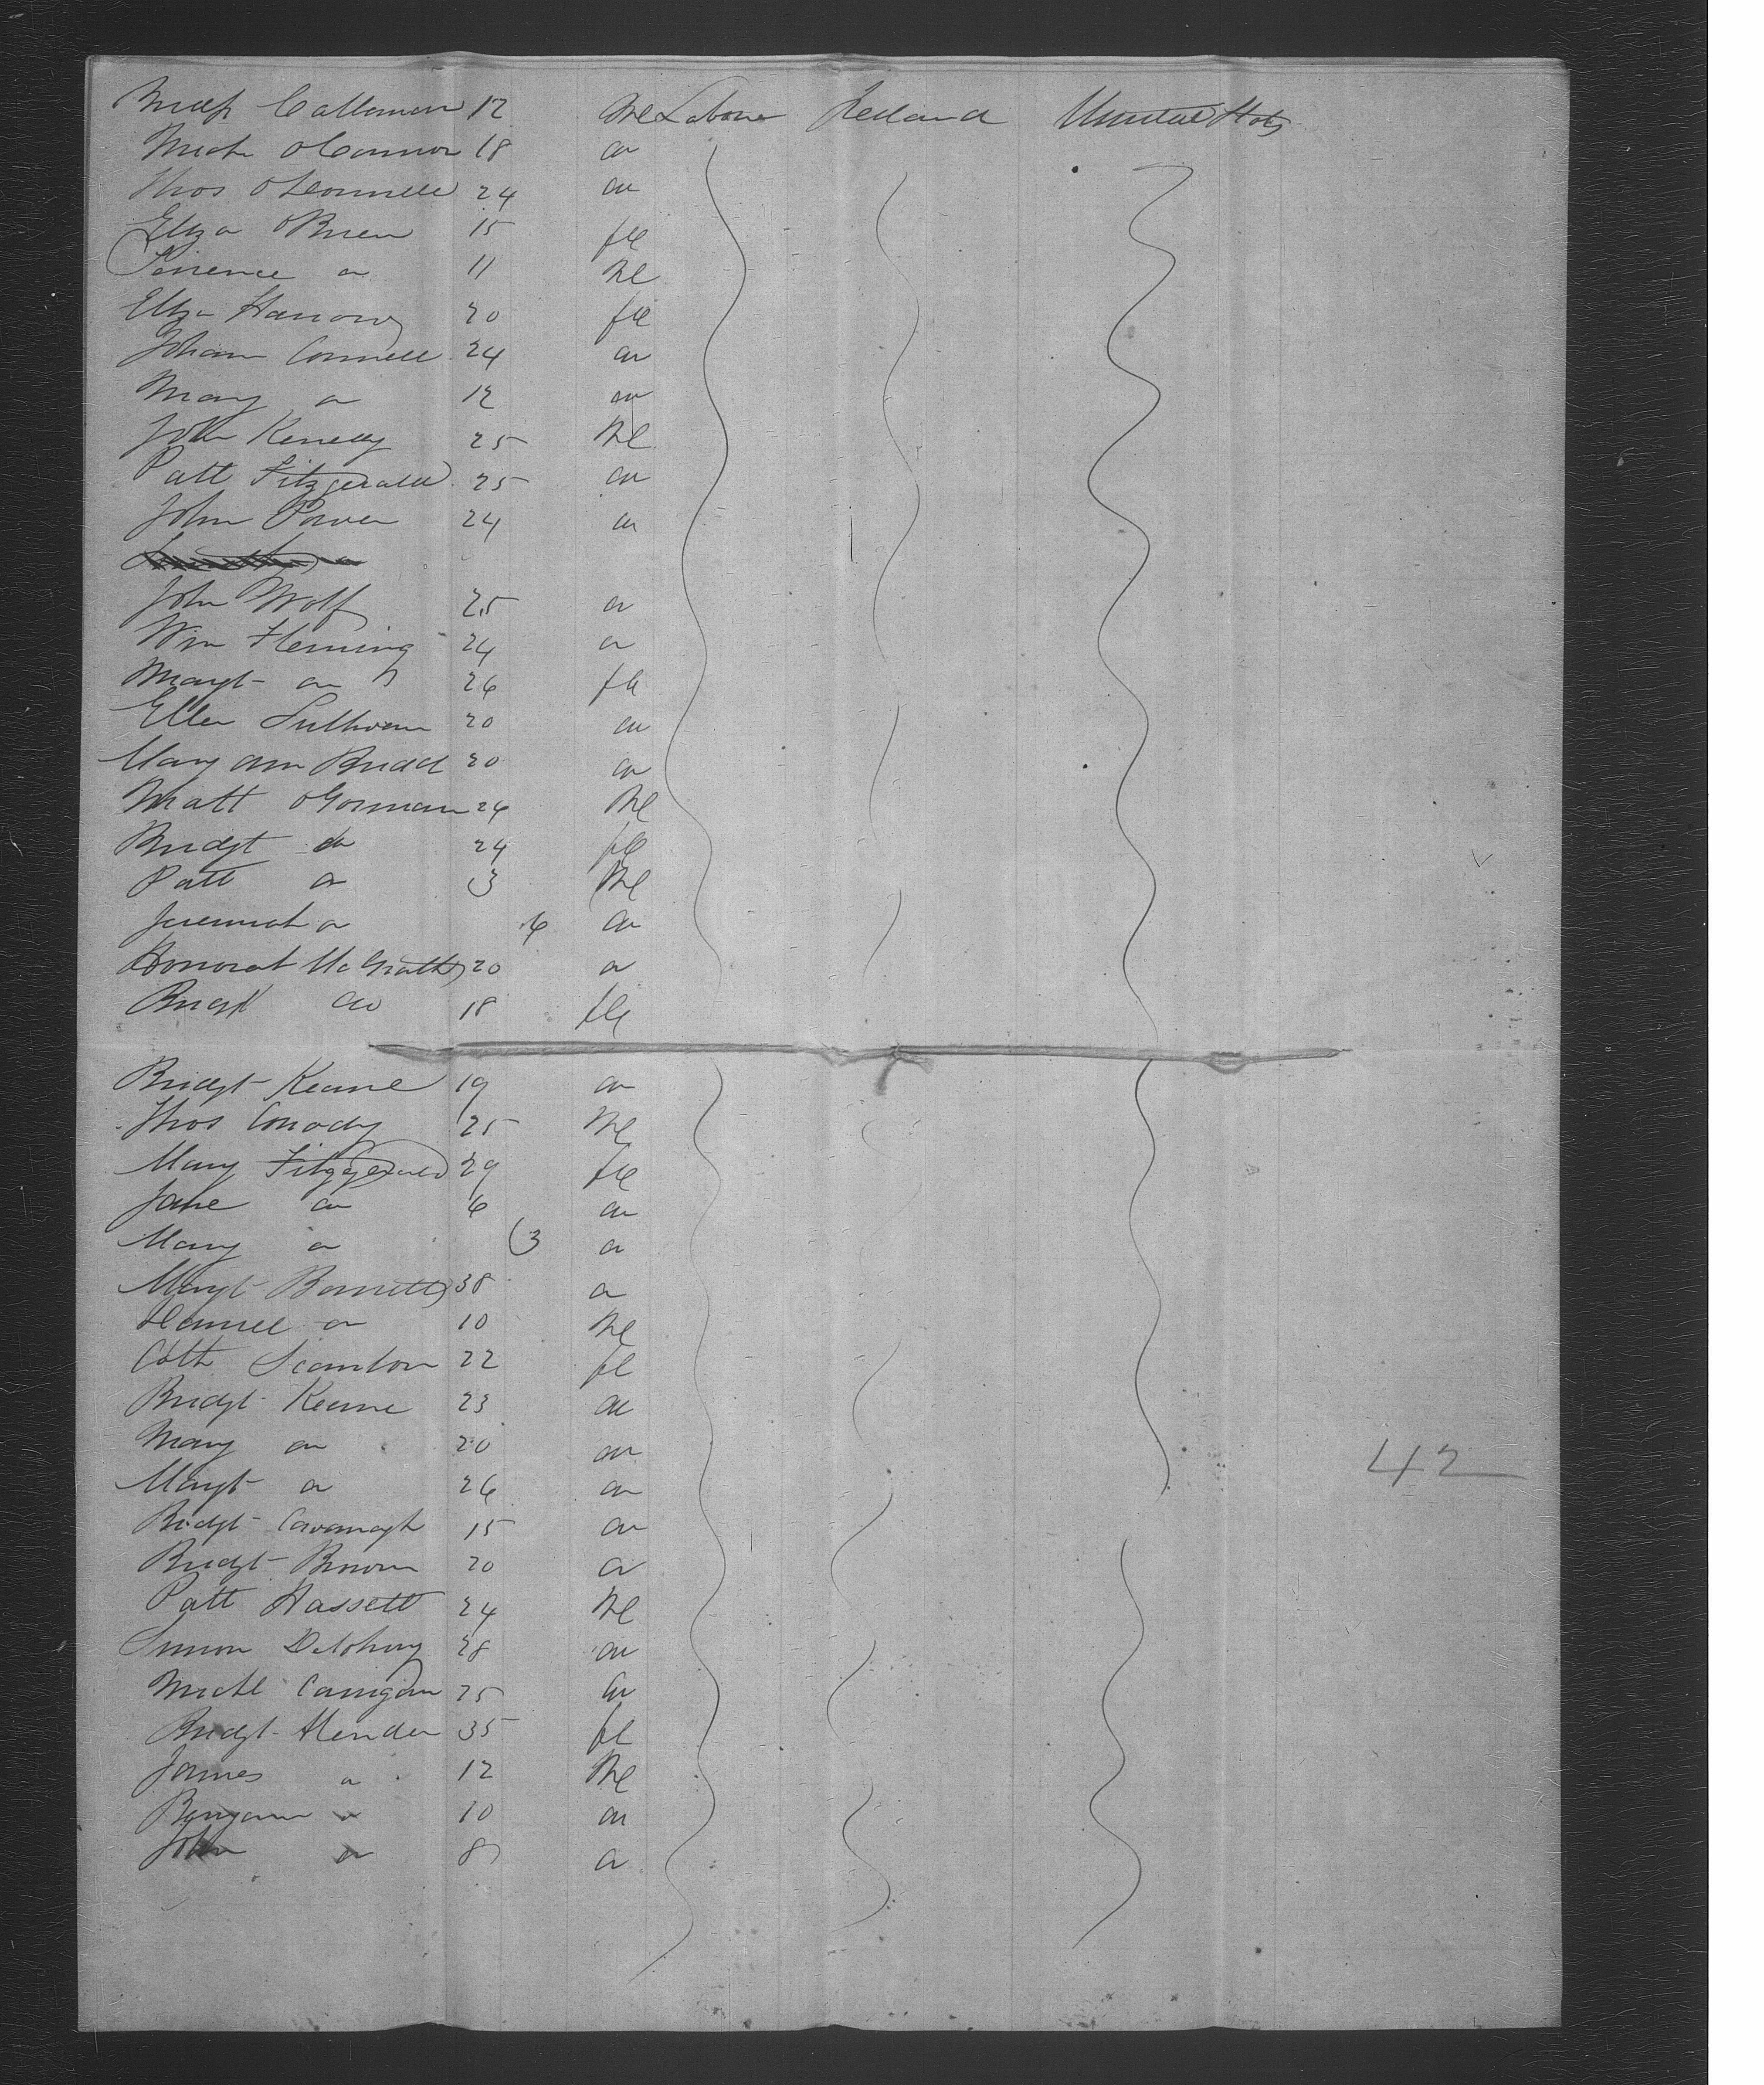 Callaman 12 Me Labour Ireland United Stats
Mich OConnor 18 do
Thos OConnell 24 do
Eliza OBrien 15 fe
Terrence do 11 Me
Eliza 20 fe
Johan Connell 24 do
Mary do 12 do
John Kenedy 25 Me
Patt Fitzgerald 25 do
John Power 24 do
John Wolf 25 do
Wm Fleming 24 do
Margt do 26 fe
Ellen Sullivan 20 do
Mary Ann 20 do
Matt OGorman 26 Me
Bridgt do 24 fe
Patt do 3 Me
Jeremiah do 6 do
Honorah McGrath 20 do
Bridgt do 18 fe
Bridgt Keane 19 do
Thos Conody 25 Me
Mary Fitzgerald 29 fe
Jane do 6 do
Mary do 3 do
Margt 38 do
Daniel do 10 Me
Cath Scanlon 22 fe
Bridgt Keane 23 do
Mary do 20 do
Margt do 26 do 42
Bridgt Cavanagh 15 do
Bridgt Brown 20 do
Patt Hassett 24 Me
Simon 28 do
Michl Carrigan 25 do
Bridgt 35 fe
James do 12 Me
Benjamin do 10 do
John do 8 do